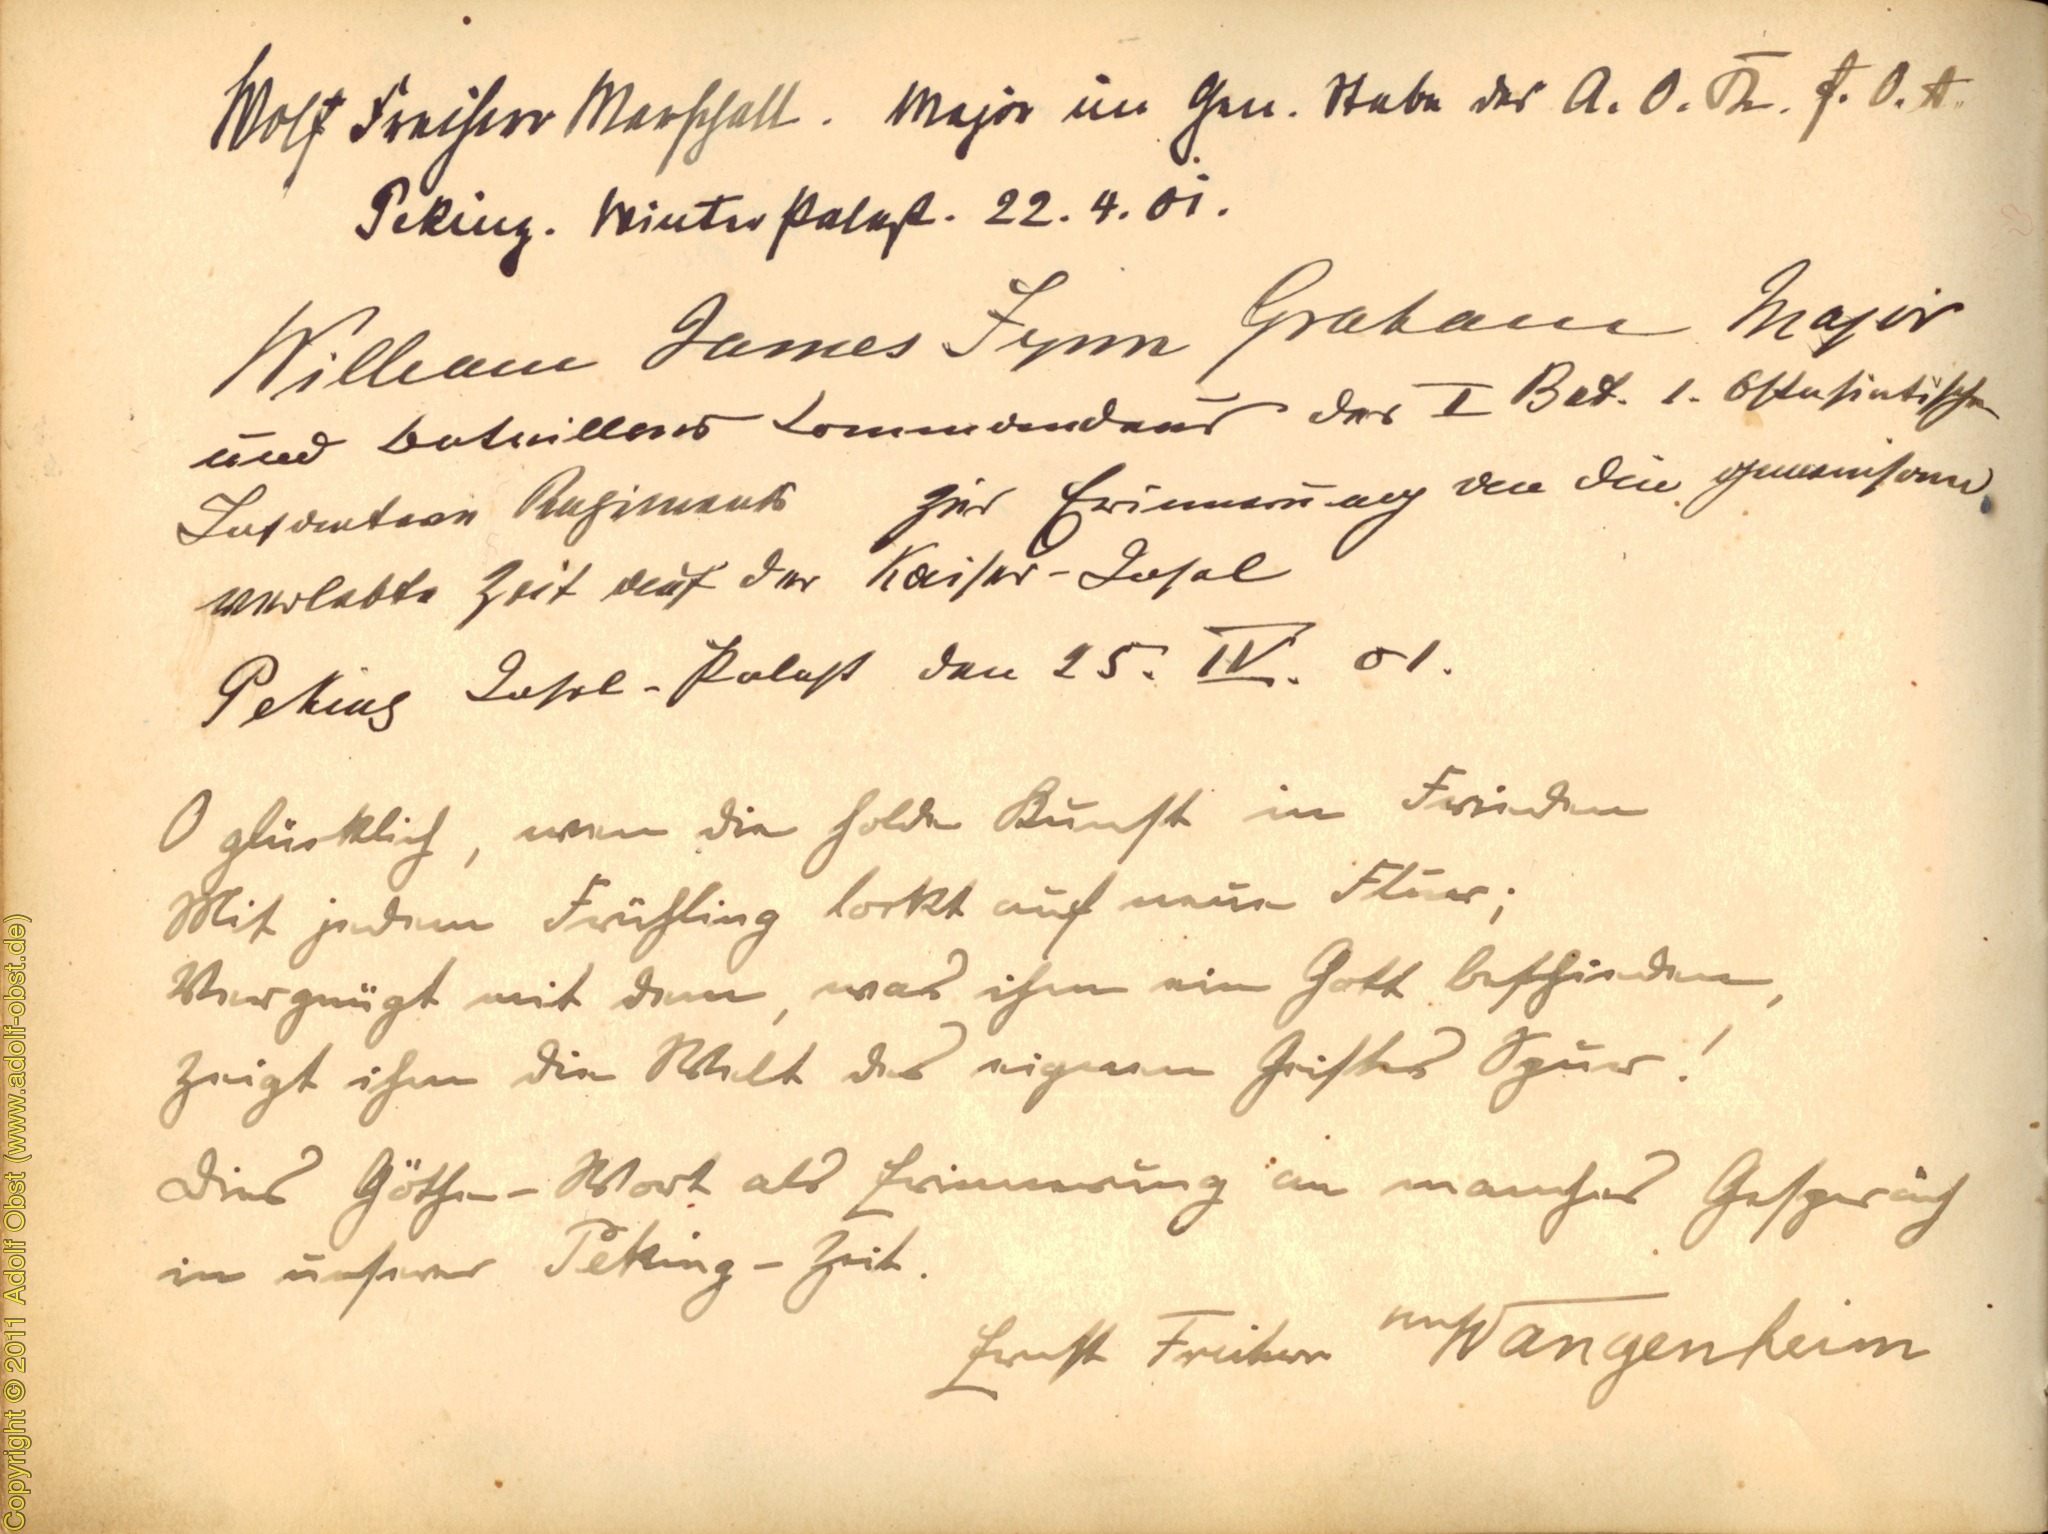 Wolf Freiherr Marschall. Major im Gen. Stabe des A. O. K. f. O. A.
Peking. Winterpalast. 22.4.01.
William James Fynn Graham Major
und Bataillons Commandeur des I Bat. 1. Ostasiatischen
Infanterie Regiments zur Erinnerung an die gemeinsam
verlebte Zeit auf der Kaiser-Insel
Peking Insel-Palast den 25. IV. 01.
O glücklich, wen die holde Kunst in Frieden
Mit jedem Frühling lockt auf neue Flur;
Vergnügt mit dem, was ihm ein Gott beschieden,
Zeigt ihm die Welt des eigenen Geistes Spur!
Dies Göthe-Wort als Erinnerung an manches Gespräch
in unserer Peking-Zeit.
Ernst Freiherr von Wangenheim
Copyright © 2011 Adolf Obst (www.adolf-obst.de)